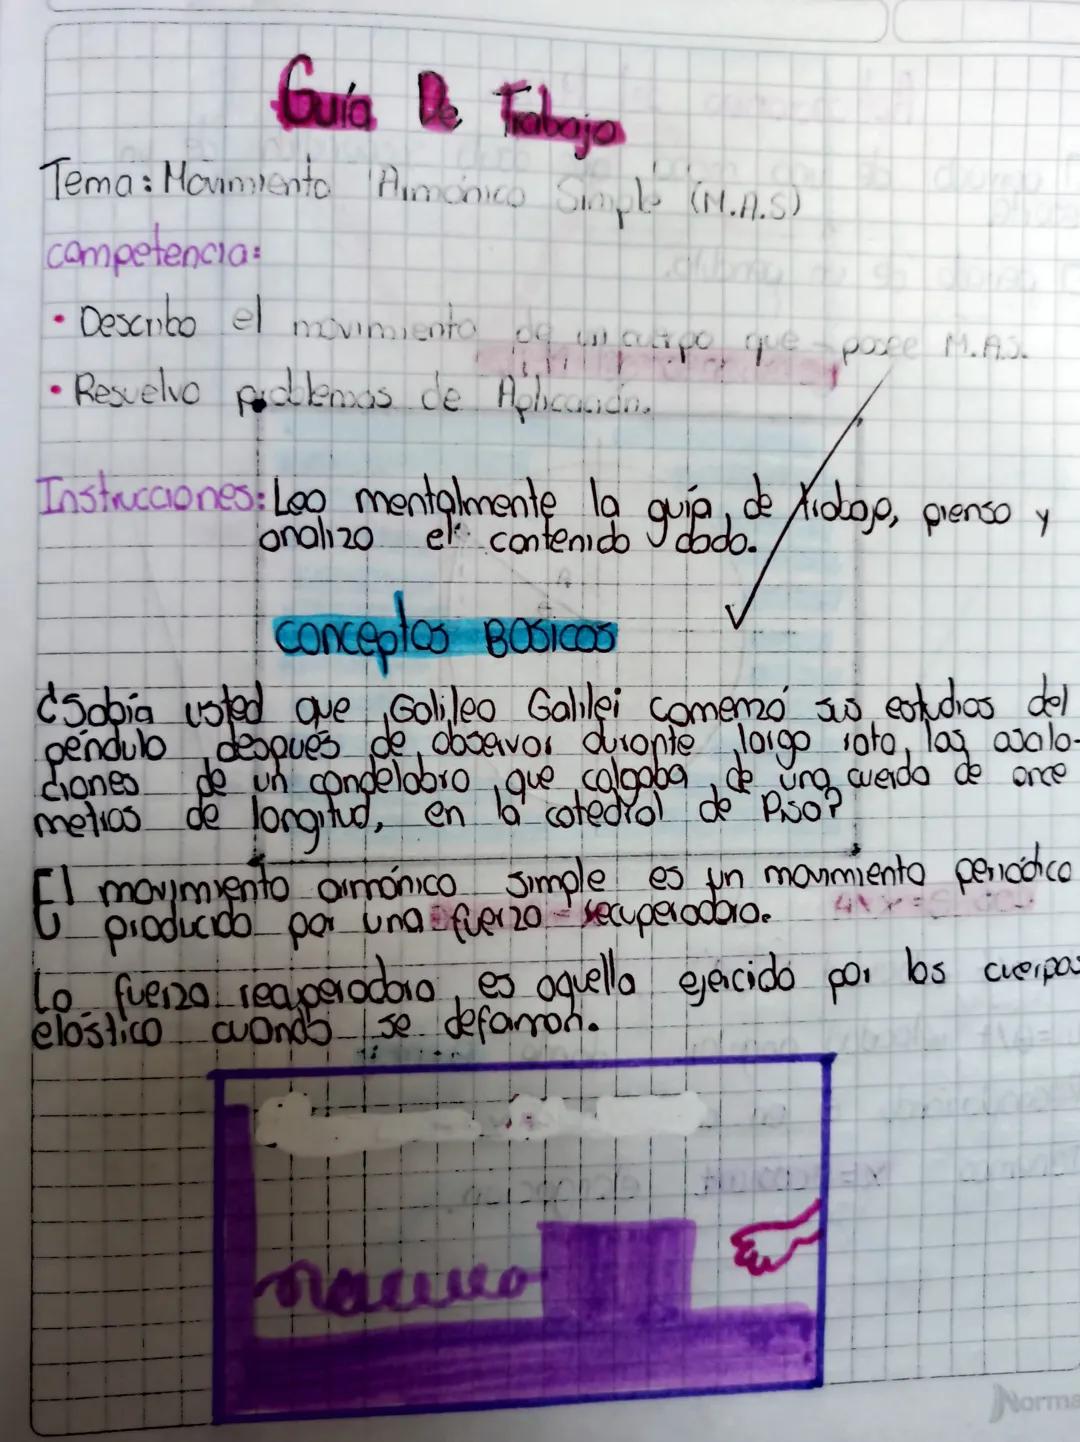 Guía De Trabajo
Tema: Movimiento Armónico Simple (M.A.S)
competencia:
• Describo el movimiento de un cuerpo que posee M.A.S.
• Resuelvo problemas de Aplicación.
Instrucciones: Leo mentalmente la guía de trabajo, pienso y
analizo el contenido dado.
conceptos BáSicos
¿Sabía usted que Galileo Galilei comenzó sus estudios del
péndulo después de observar durante largo rato, las oscila-
ciones de un candelabro que colgaba de una cuerda de once
metros de longitud, en la catedral de Pisa?
El movimiento armónico simple es un movimiento periódico
producido por una fuerza recuperadora.
La fuerza recuperadora es aquella ejercida por los cuerpos
elástico cuando se deforman.
Norma